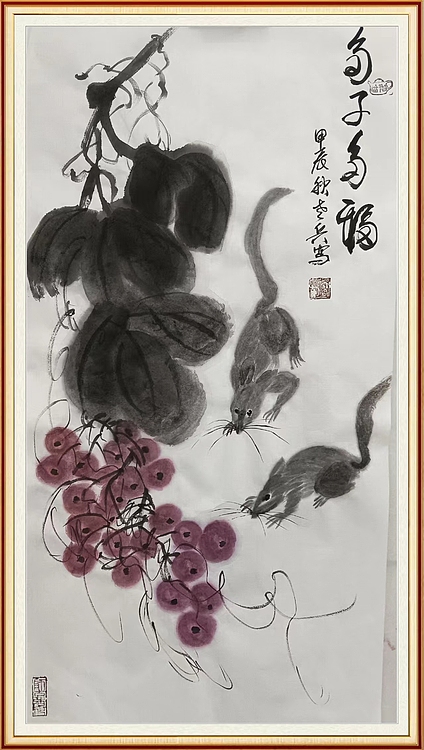 多子多福
甲辰秋老兵写